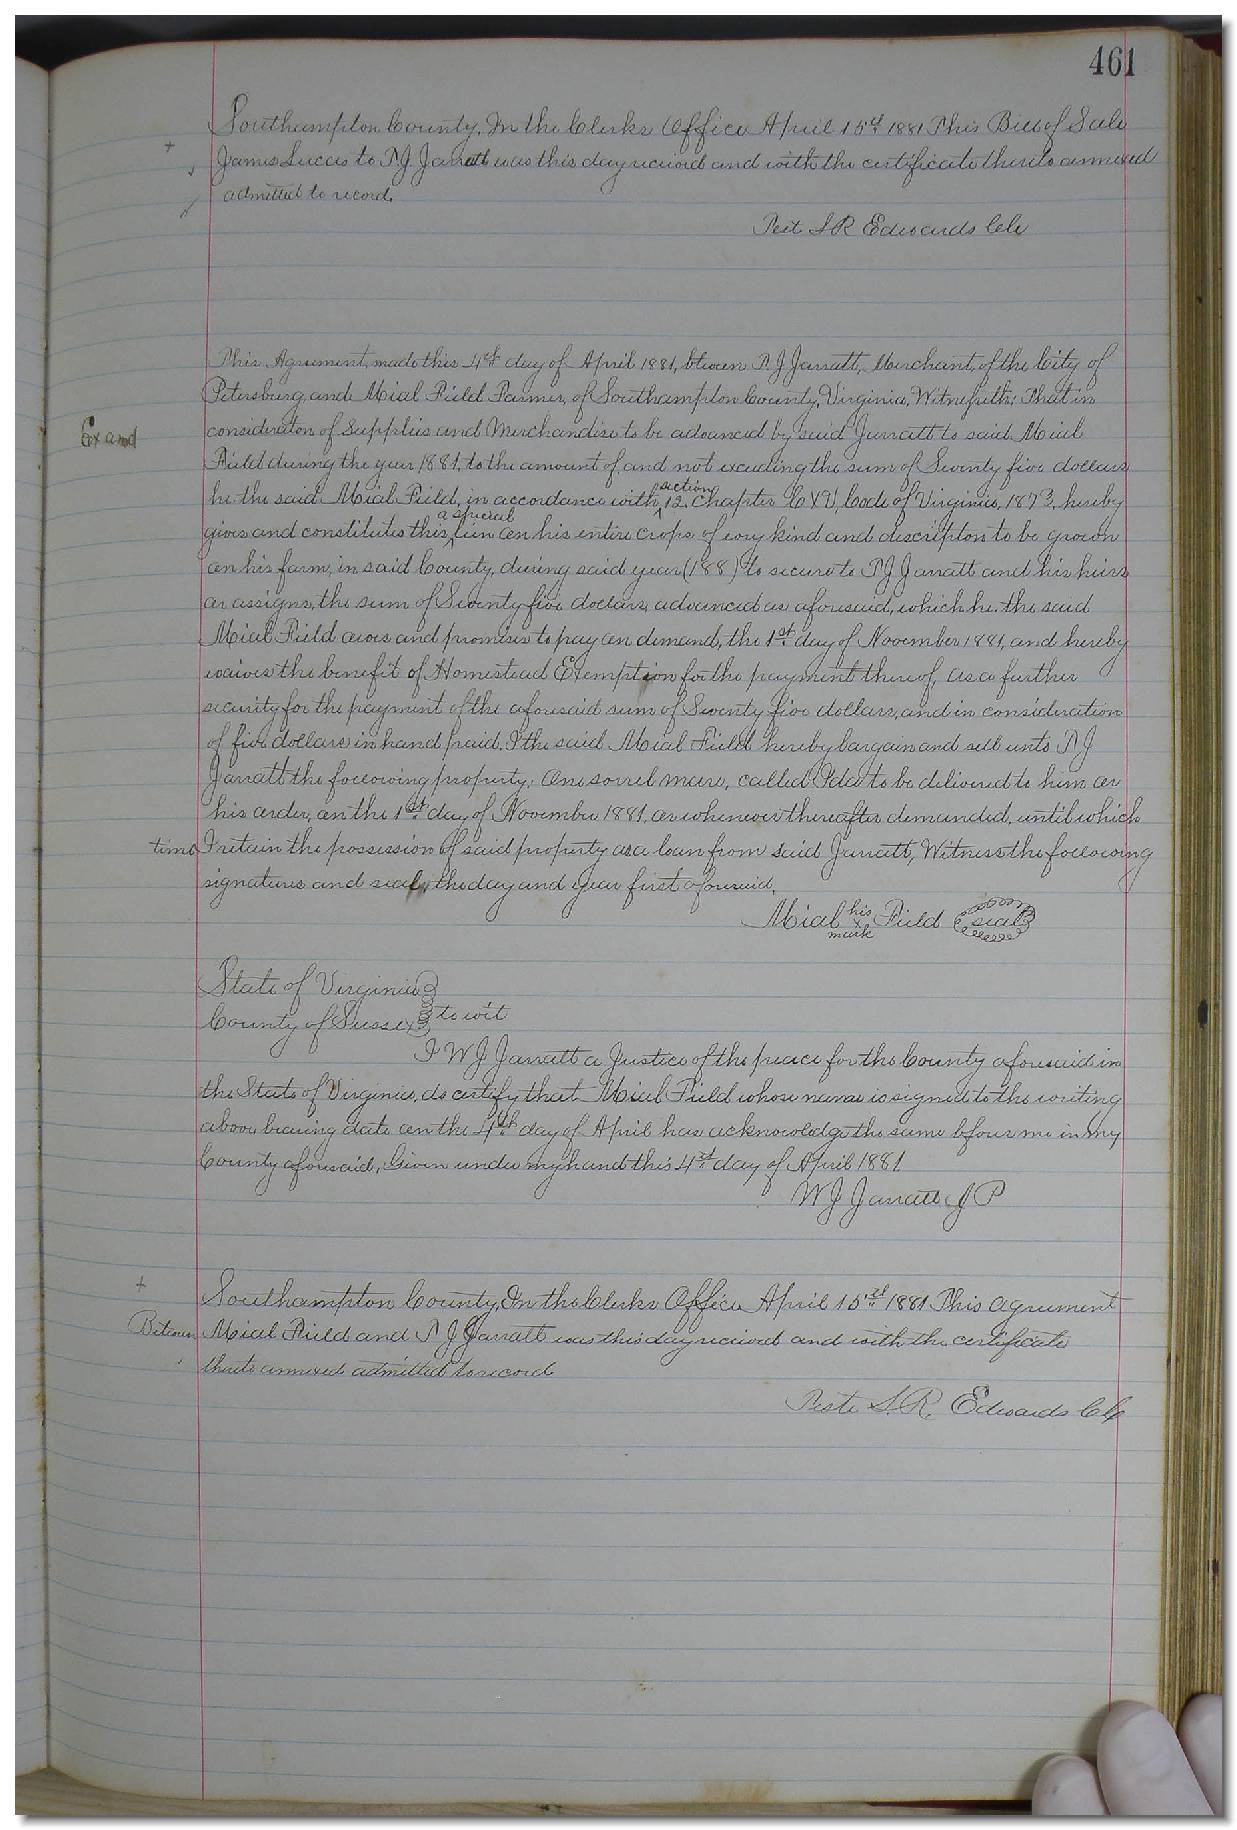 461
Southampton County, In the Clerks Office April 15st 1881 This Bill of Sale
James Lucas to P J Jarratt was this day received and with the certificate thereto annexed
admitted to record.
Test S R Edwards Clk
This Agreement, made this 4th day of April 1881, between P. J Jarratt, Merchant, of the City of
Petersburg, and Mial Field Farmer, of Southampton County, Virginia, Witnesseth; That in
Exand
consideration of Supplies and Merchandise to be advanced by said Jarratt to said Mial
Field during the year 1881, to the amount of, and not exceeding the sum of Seventy five dollars,
he the said Mial Field, in accordance with section 12, Chapter CXV, Code of Virginia, 1873, hereby
gives and constitutes this a special lien on his entire crops of every kind and description to be grown
on his farm, in said County, during said year (188 ) to secure to P J Jarratt and his heirs
or assigns, the sum of Seventy five dollars, advanced as aforesaid, which he, the said
Mial Field owes and promises to pay on demand, the 1st day of November 1881, and hereby
waives the benefit of Homestead Exemption for the payment thereof, as a further
security for the payment of the aforesaid sum of Seventy five dollars, and in consideration
of five dollars in hand paid, I the said Mial Field hereby bargain and sell unto P J
Jarratt the following property; One sorrel mare, called Ida to be delivered to him or
his order, on the 1st day of November 1881, or whenever thereafter demanded, until which
time I retain the possession of said property as a loan from said Jarratt, Witness the following
signatures and seal, the day and year first aforesaid.
Mial his x mark Field seal
State of Virginia
County of Sussex to wit
I W J Jarratt a Justice of the peace for the County aforesaid in
the State of Virginia, do certify that Mial Field whose name is signed to the writing
above bearing date on the 4th day of April has acknowledge the same before me in my
County aforesaid, Given under my hand this 4st day of April 1881.
W J Jarratt J P
Southampton County, In the Clerks Office April 15st 1881 This agreement
Between Mial Field and P J Jarratt was this day received and with the certificate
thereto annexed admitted to record
Teste S. R. Edwards Clk